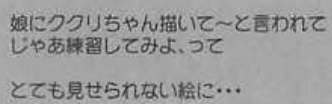 娘にククリちゃん描いて～と言われて
じゃあ練習してみよ、って
とても見せられない絵に・・・